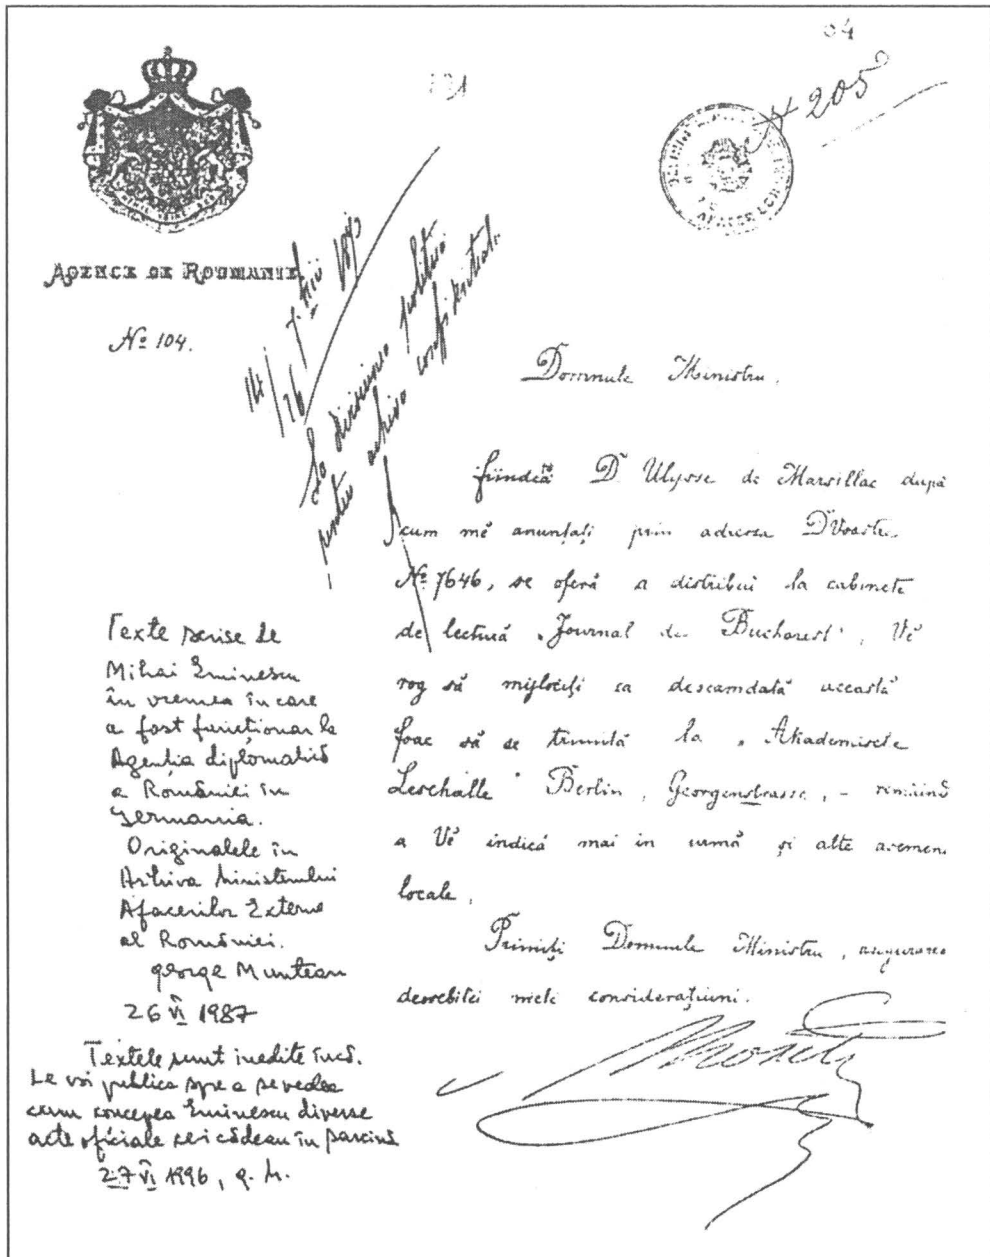 04
121
№ 205
AGENCE DE ROUMANIE.
№ 104.
14/26
La divisiunea politică
pentru arhiva confidential.
Domnule Ministru,
fiindcă Dl Ulysse de Marsillac după
cum mĕ anunțați prin adresa DVoastre
№ 7646, se oferă a distribui la cabinete
de lectură „Journal de Bucharest", Vĕ
rog să mijlociți ca deocamdată această
foae să se trimită la „Akademische
Lesehalle" Berlin, Georgenstrasse, – remăind
a Vĕ indică mai in urmă și alte asemen
locale.
Primiți Domnule Ministru, asigurarea
deosebitei mele considerațiuni.
Texte scrise de
Mihai Eminescu
în vremea în care
a fost funcționar la
Agenția diplomatică
a României în
Germania.
Originalele în
Arhiva Ministerului
Afacerilor Externe
al României.
George Muntean
26 VI 1987
Textele sunt inedite încă.
Le voi publica spre a se vedea
cum concepea Eminescu diverse
acte oficiale ce-i cădeau în sarcină
27 VI 1996, g. M.